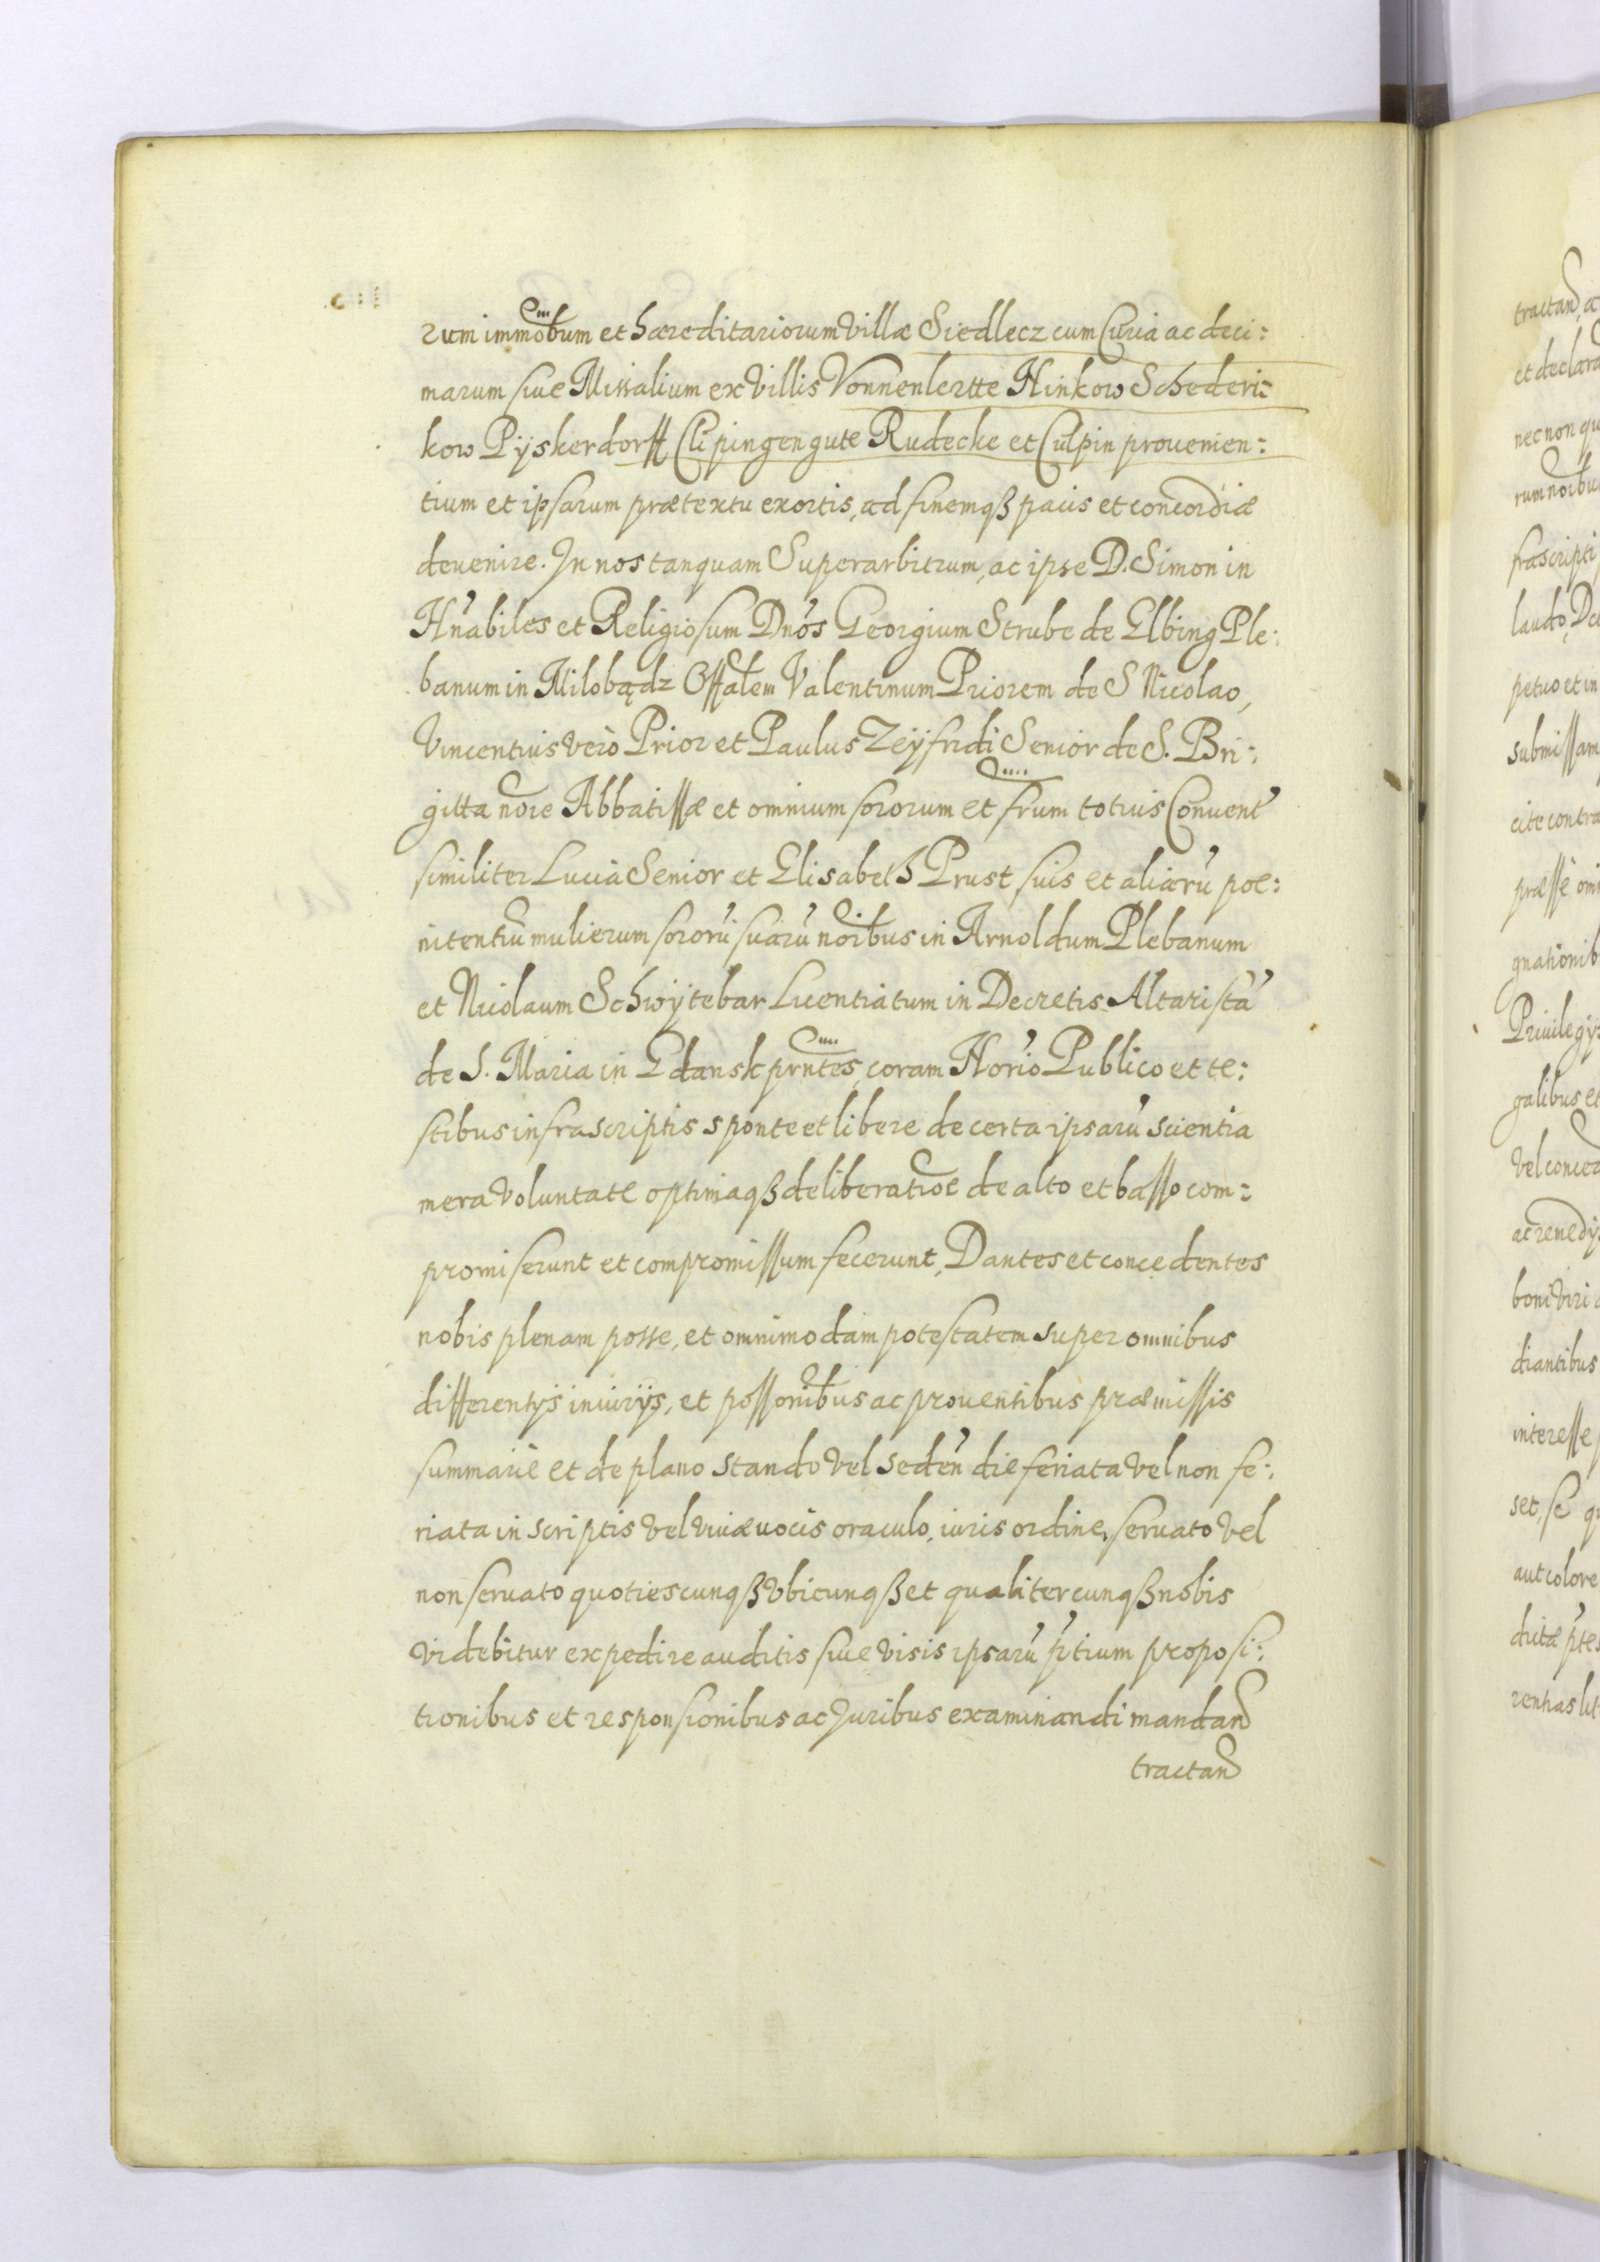 rum immobum et hæreditariorum villæ Siedlecz cum Curia ac deci:
marum siue Missalium ex villis Vonnenlertte Hinkow Schederi:
kow Pÿskerdorff Clipingengute Rudecke et Culpin prouenien:
tium et ipsarum prætextu exortis, ad finemqß pacis et concordiæ
deuenire. In nos tanquam Superarbitrum, ac ipse D. Simon in
Hnabiles et Religiosum Dnos Georgium Strube de Elbing Ple:
banum in Milobądz Offalem Valentinum Priorem de S Nicolao,
Vincentius verò Prior et Paulus Zeÿfridi Senior de S. Bri:
gitta nore Abbatissæ et omnium sororum et frum totius Conuent
similiter Lucia Senior et Elisabeth Prust suis et aliarũ poe:
nitentiũ mulierum sororũ suarũ noribus in Arnoldum Plebanum
et Nicolaum Schwÿtebar Licentiatum in Decretis Altaristã
de S. Maria in Gdansk prntes, coram Norio Publico et te:
stibus infrascriptis sponte et libere de certa ipsarũ scientia
mera voluntate optimaqß deliberatioe de alto et basso com:
promiserunt et compromissum fecerunt, Dantes et concedentes
nobis plenam posse, et omnimodam potestatem super omnibus
differentÿs iniurÿs, et possonibus ac prouentibus præmissis
summariè et de plano stando vel seden die feriata vel non fe:
riata in scriptis vel viuæ uocis oraculo, iuris ordine, seruato vel
non seruato quotiescunqß vbicunqß et qualitercunqß nobis
videbitur expedire auditis siue visis ipsarũ ptium proposi:
tionibus et responsionibus ac Juribus examinandi mandan
tractan
tractan
et declara
nec non qu
rum noibu
frascripti
laudo, De
petuo et in
submissam
cite contra
præsse om
gnationib
Priuilegÿs
galibus et
vel conce
ac remedÿ
boni viri
diantibus
interesse
set, se q
aut colore
dictæ ptes
rentias lit